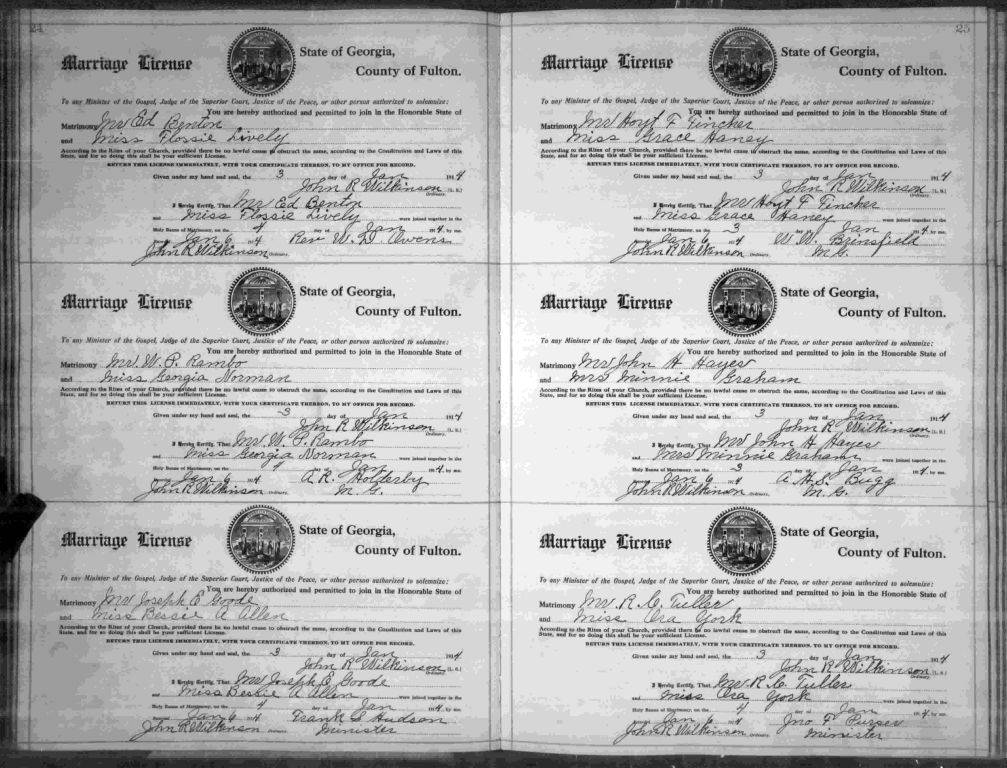 24
Marriage License
State of Georgia,
County of Fulton.
To any Minister of the Gospel, Judge of the Superior Court, Justice of the Peace, or other person authorized to solemnize:
You are hereby authorized and permitted to join in the Honorable State of
Matrimony Mr Ed Benton
and Miss Flossie Lively
According to the Rites of your Church, provided there be no lawful cause to obstruct the same, according to the Constitution and Laws of this
State, and for so doing this shall be your sufficient License.
RETURN THIS LICENSE IMMEDIATELY, WITH YOUR CERTIFICATE THEREON, TO MY OFFICE FOR RECORD.
Given under my hand and seal, the 3 day of Jan 1914
John R Wilkinson (L. S.)
Ordinary.
I Hereby Certify, That Mr Ed Benton
and Miss Flossie Lively were joined together in the
Holy Banns of Matrimony, on the 4 day of Jan 1914, by me.
Jan 6 1914 Rev W. D. Owens
John R Wilkinson Ordinary.
Marriage License
State of Georgia,
County of Fulton.
To any Minister of the Gospel, Judge of the Superior Court, Justice of the Peace, or other person authorized to solemnize:
You are hereby authorized and permitted to join in the Honorable State of
Matrimony Mr. W. P. Rambo
and Miss Georgia Norman
According to the Rites of your Church, provided there be no lawful cause to obstruct the same, according to the Constitution and Laws of this
State, and for so doing this shall be your sufficient License.
RETURN THIS LICENSE IMMEDIATELY, WITH YOUR CERTIFICATE THEREON, TO MY OFFICE FOR RECORD.
Given under my hand and seal, the 3 day of Jan 1914
John R Wilkinson (L. S.)
Ordinary.
I Hereby Certify, That Mr. W. P. Rambo
and Miss Georgia Norman were joined together in the
Holy Banns of Matrimony, on the 4 day of Jan 1914, by me.
Jan 6 1914 A. R. Holderby
John R Wilkinson Ordinary. M. G.
Marriage License
State of Georgia,
County of Fulton.
To any Minister of the Gospel, Judge of the Superior Court, Justice of the Peace, or other person authorized to solemnize:
You are hereby authorized and permitted to join in the Honorable State of
Matrimony Mr Joseph E Goode
and Miss Bessie A Allen
According to the Rites of your Church, provided there be no lawful cause to obstruct the same, according to the Constitution and Laws of this
State, and for so doing this shall be your sufficient License.
RETURN THIS LICENSE IMMEDIATELY, WITH YOUR CERTIFICATE THEREON, TO MY OFFICE FOR RECORD.
Given under my hand and seal, the 3 day of Jan 1914
John R Wilkinson (L. S.)
Ordinary.
I Hereby Certify, That Mr Joseph E Goode
and Miss Bessie A Allen were joined together in the
Holy Banns of Matrimony, on the 4 day of Jan 1914, by me.
Jan 6 1914 Frank C Hudson
John R Wilkinson Ordinary. Minister
25
Marriage License
State of Georgia,
County of Fulton.
To any Minister of the Gospel, Judge of the Superior Court, Justice of the Peace, or other person authorized to solemnize:
You are hereby authorized and permitted to join in the Honorable State of
Matrimony Mr Hoyt F Fincher
and Miss Grace Haney
According to the Rites of your Church, provided there be no lawful cause to obstruct the same, according to the Constitution and Laws of this
State, and for so doing this shall be your sufficient License.
RETURN THIS LICENSE IMMEDIATELY, WITH YOUR CERTIFICATE THEREON, TO MY OFFICE FOR RECORD.
Given under my hand and seal, the 3 day of Jan 1914
John R Wilkinson (L. S.)
Ordinary.
I Hereby Certify, That Mr Hoyt F Fincher
and Miss Grace Haney were joined together in the
Holy Banns of Matrimony, on the 3 day of Jan 1914, by me.
Jan 6 1914 W. W. Brinsfield
John R Wilkinson Ordinary. M. G.
Marriage License
State of Georgia,
County of Fulton.
To any Minister of the Gospel, Judge of the Superior Court, Justice of the Peace, or other person authorized to solemnize:
You are hereby authorized and permitted to join in the Honorable State of
Matrimony Mr John H Hayes
and Mrs Minnie Graham
According to the Rites of your Church, provided there be no lawful cause to obstruct the same, according to the Constitution and Laws of this
State, and for so doing this shall be your sufficient License.
RETURN THIS LICENSE IMMEDIATELY, WITH YOUR CERTIFICATE THEREON, TO MY OFFICE FOR RECORD.
Given under my hand and seal, the 3 day of Jan 1914
John R Wilkinson (L. S.)
Ordinary.
I Hereby Certify, That Mr John H Hayes
and Mrs Minnie Graham were joined together in the
Holy Banns of Matrimony, on the 3 day of Jan 1914, by me.
Jan 6 1914 A. H. S. Bugg
John R Wilkinson Ordinary. M. G.
Marriage License
State of Georgia,
County of Fulton.
To any Minister of the Gospel, Judge of the Superior Court, Justice of the Peace, or other person authorized to solemnize:
You are hereby authorized and permitted to join in the Honorable State of
Matrimony Mr. R. C. Fuller
and Miss Ora York
According to the Rites of your Church, provided there be no lawful cause to obstruct the same, according to the Constitution and Laws of this
State, and for so doing this shall be your sufficient License.
RETURN THIS LICENSE IMMEDIATELY, WITH YOUR CERTIFICATE THEREON, TO MY OFFICE FOR RECORD.
Given under my hand and seal, the 3 day of Jan 1914
John R Wilkinson (L. S.)
Ordinary.
I Hereby Certify, That Mr. R. C. Fuller
and Miss Ora York were joined together in the
Holy Banns of Matrimony, on the 4 day of Jan 1914, by me.
Jan 6 1914 Jno F Purser
John R Wilkinson Ordinary. Minister